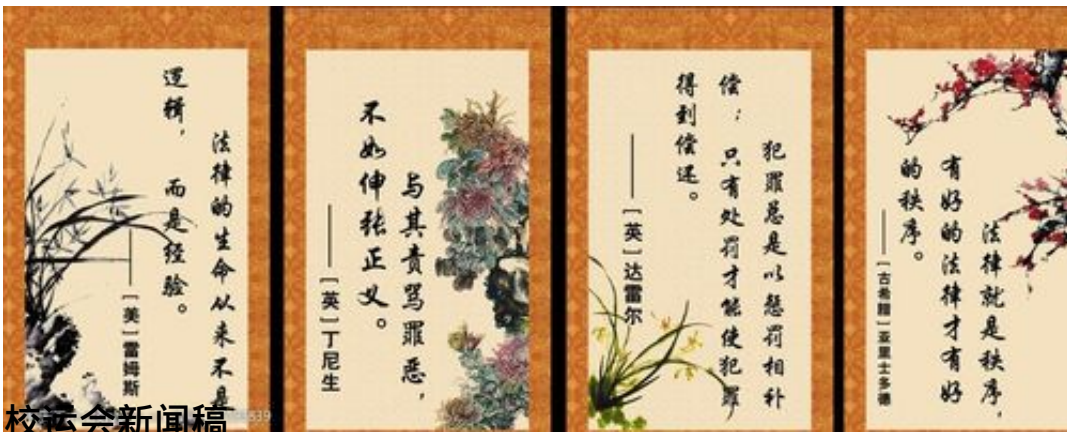 法律的生命从来不是
逻辑，而是经验。
——[美]雷姆斯
与其责骂罪恶，
不如伸张正义。
——[英]丁尼生
犯罪总是以惩罚相补
偿；只有处罚才能使犯罪
得到偿还。
——[英]达雷尔
法律就是秩序，
有好的法律才有好
的秩序。
——[古希腊]亚里士多德
校运会新闻稿